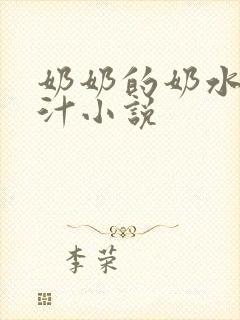 奶奶的奶水
汁小说
李荣